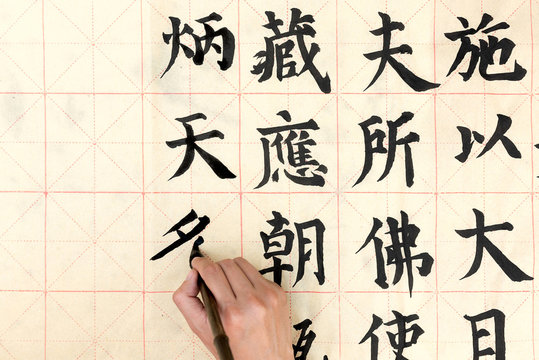 施以大
夫所佛使
藏應朝
炳天